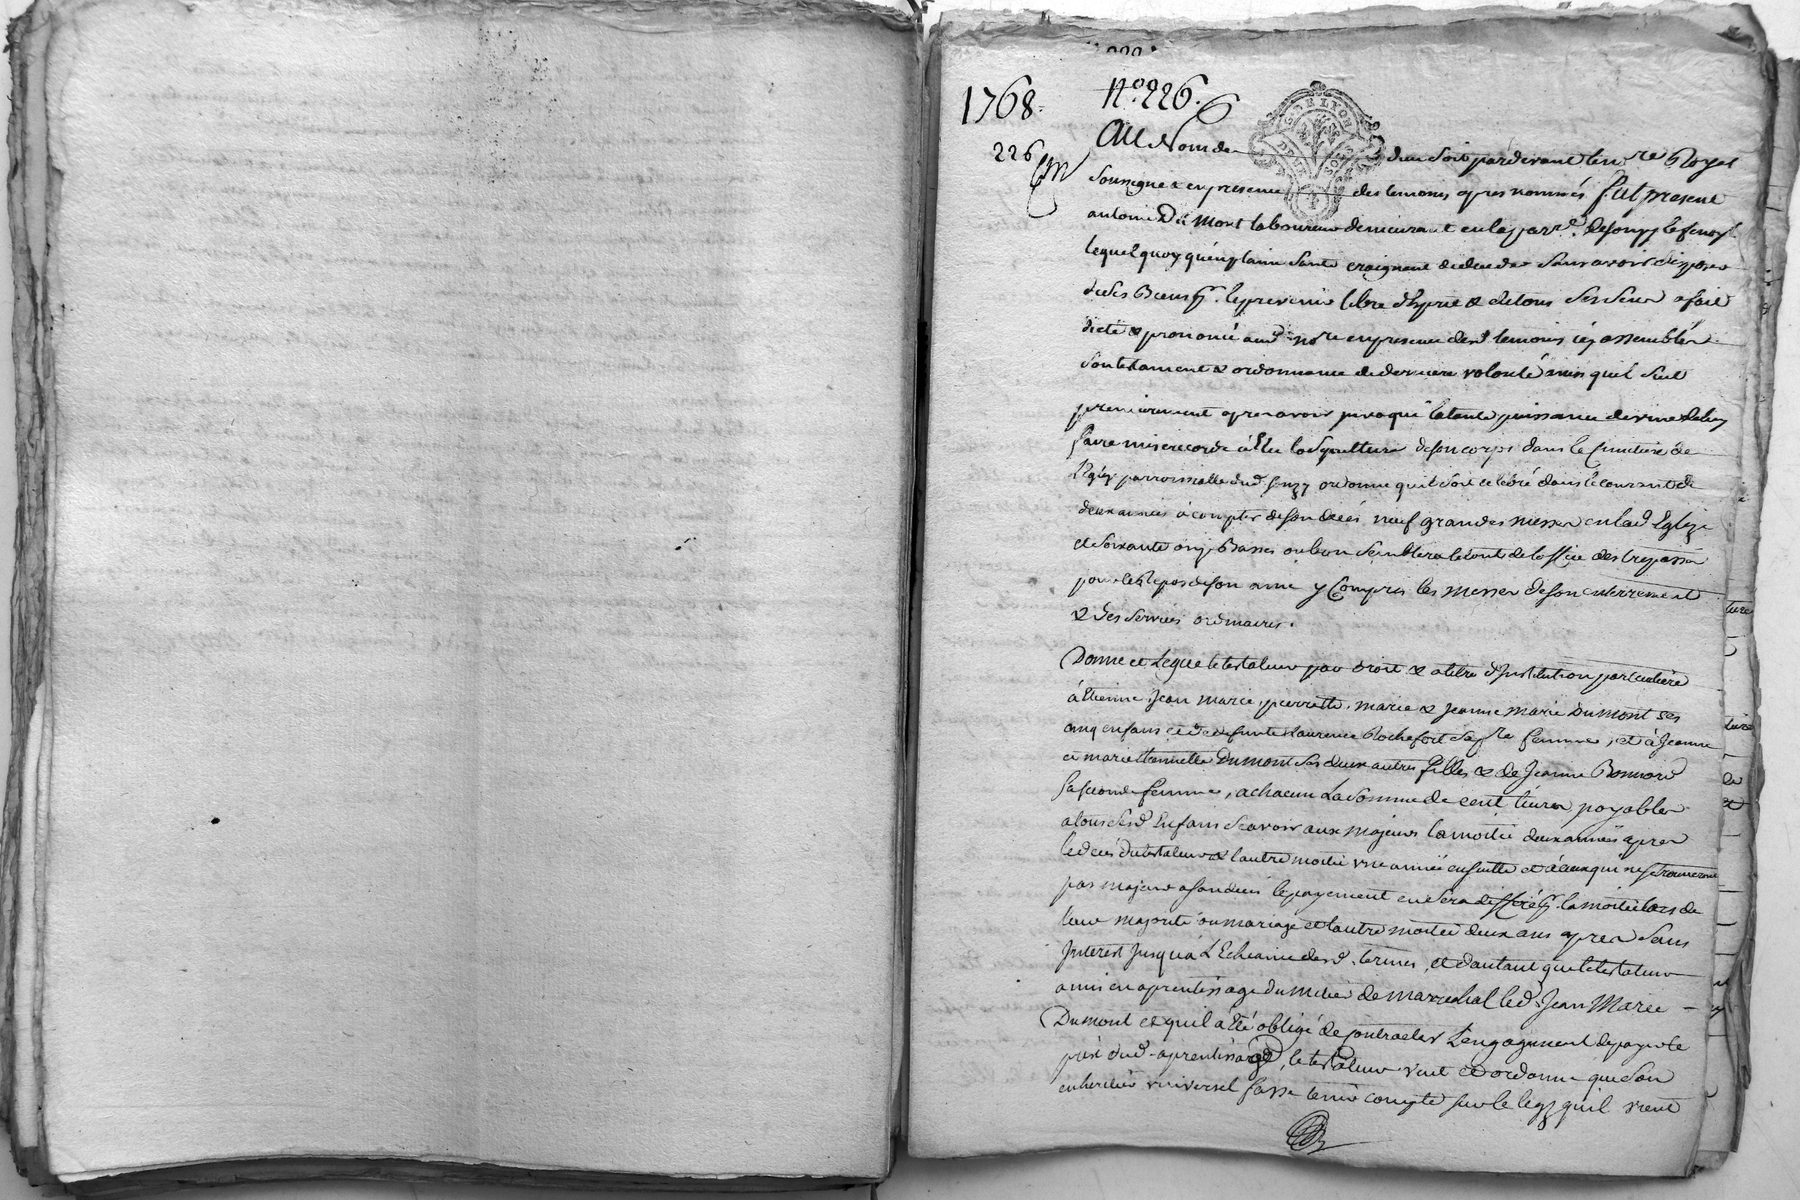 1768.
N.° 226.
226
G. DE LYON
DEUX SOLS
Au Nom de dieu soit pardevant le no.re Royal
soussigne & en presence des temoins apres nommés fut present
antoine Du mont laboureur demeurant en la parr.e de souzy
lequel quoy qu'en plaine santé craignant de deceder sans avoir disposé
de ses Biens libre d'esprit & de tous ses sens a fait
dicté & prononcé aud. no.re en presence desd. temoins icy assemblés
son testament & ordonnance de derniere volonté ainsy quil suit
premierement apres avoir invoqué la toute puissance divine de luy
faire misericorde a Elu la sepulture de son corps dans le cimetiere de
L'Eglize parroissialle dud. souzy ordonne quil soit celebré dans le courant de
deux années à compter de son decés neuf grandes messes en lad. Eglize
et soixante onze Basses ou bon semblera le tout de loffice des trepassés
pour le Repos de son ame y Compris les messes de son enterrement
& ses services ordinaires.
Donne et Legue le testateur par droit & a titre d'Institution particuliere
à Etienne, Jean marie, pierrette, marie & Jeanne marie Dumont ses
cinq enfans et de defunte Laurence Rochefort sa p.re femme, et à Jeanne
et marie Dumont ses deux autres filles & de Jeanne
sa seconde femme, a chacun La somme de cent livres payables
a tous sesd. Enfans sçavoir aux majeurs la moitié deux années apres
le decés du testateur & lautre moitié une année ensuitte et à ceux qui ne se trouveront
pas majeurs a son decés le payement en sera differé la moitié lors de
leur majorité ou mariage et lautre moitié deux ans apres sans
Interest Jusqua L'Echeance desd. termes, et dautant que le testateur
a mis en aprentissage du metier de marechal led. Jean Marie
Dumont et quil a Eté obligé de contracter L'engagement de payer le
prix dud. aprentissage, le testateur veut et ordonne que son
heritier universel fasse tenir compte sur le legs quil vient